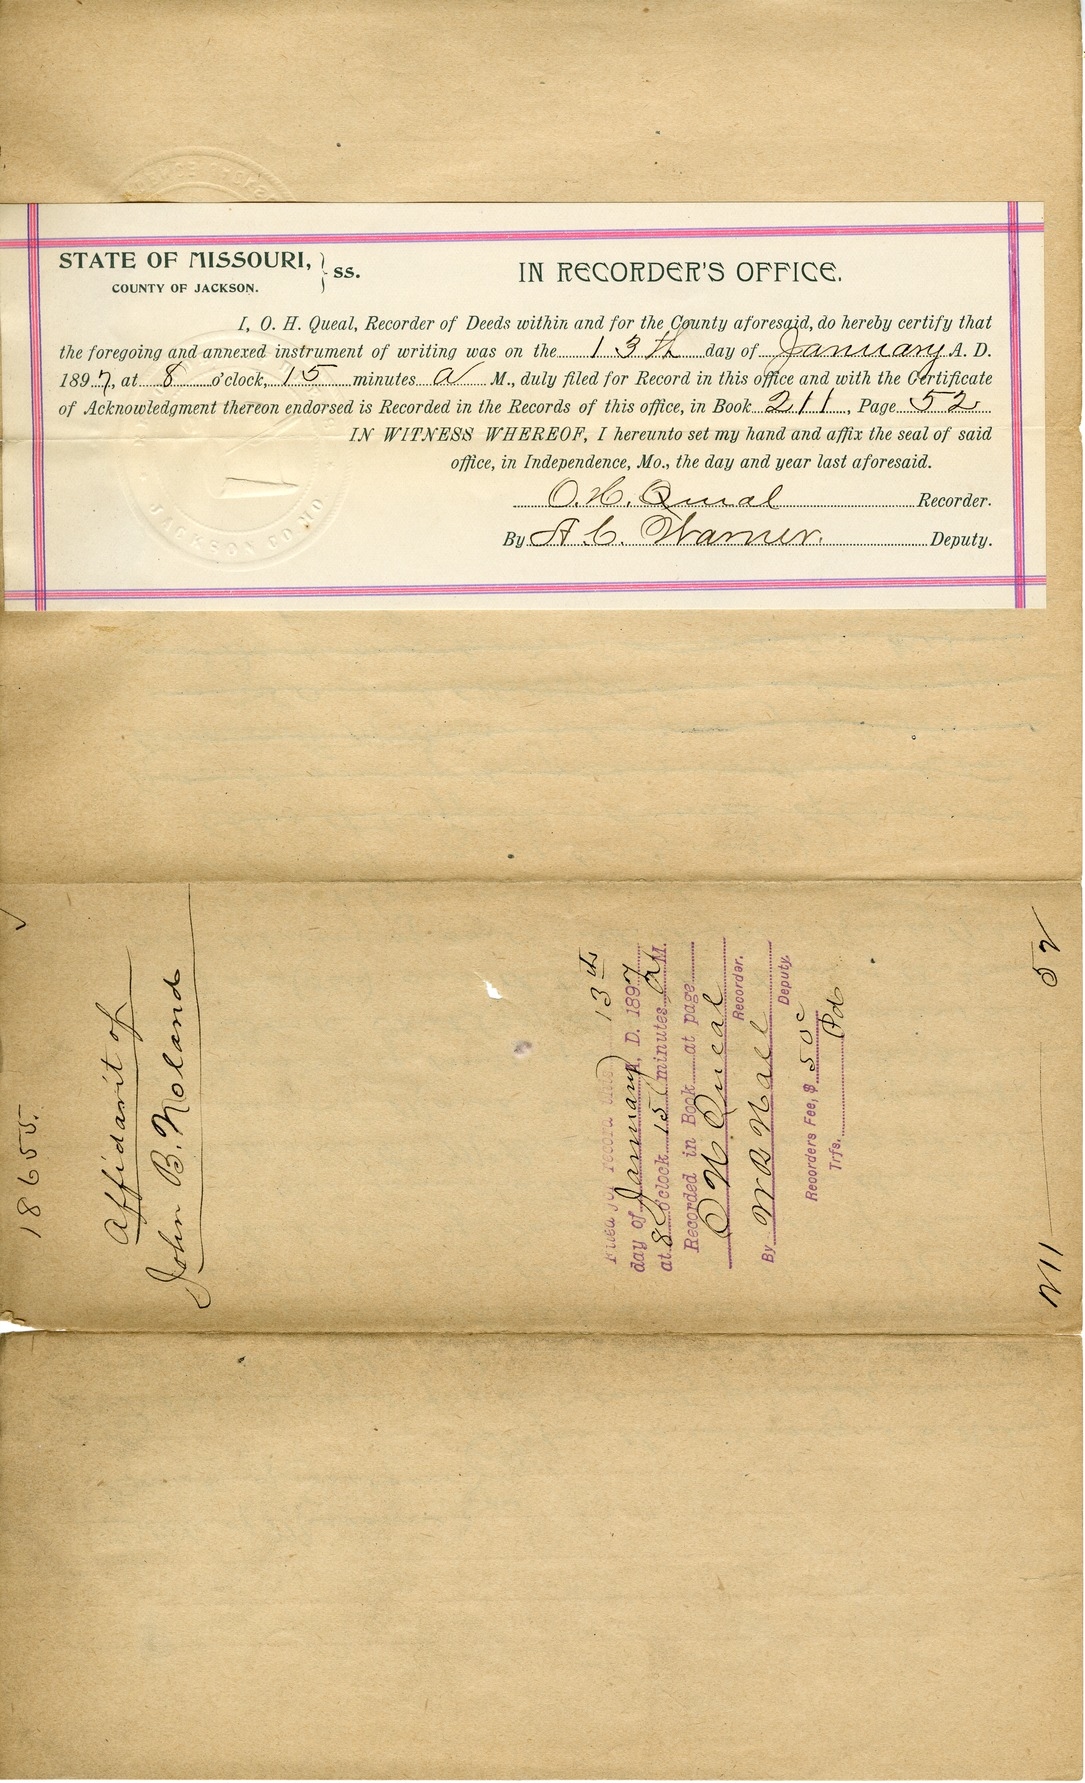 STATE OF MISSOURI, } ss.
COUNTY OF JACKSON.
IN RECORDER'S OFFICE.
I, O. H. Queal, Recorder of Deeds within and for the County aforesaid, do hereby certify that
the foregoing and annexed instrument of writing was on the 13th day of January A. D.
1897, at 8 o'clock, 15 minutes a M., duly filed for Record in this office and with the Certificate
of Acknowledgment thereon endorsed is Recorded in the Records of this office, in Book 211, Page 52
IN WITNESS WHEREOF, I hereunto set my hand and affix the seal of said
office, in Independence, Mo., the day and year last aforesaid.
O. H. Queal Recorder.
By A. C. Warner. Deputy.
JACKSON CO. MO
18655.
Affidavit of
John B. Noland
Filed for record this 13th
day of January A. D. 1897
at 8 o'clock 15 minutes a M.
Recorded in Book at page
O H Queal
Recorder.
By W B Wall
Deputy.
Recorders Fee, $ 50c
Trfs. Pd
211 52